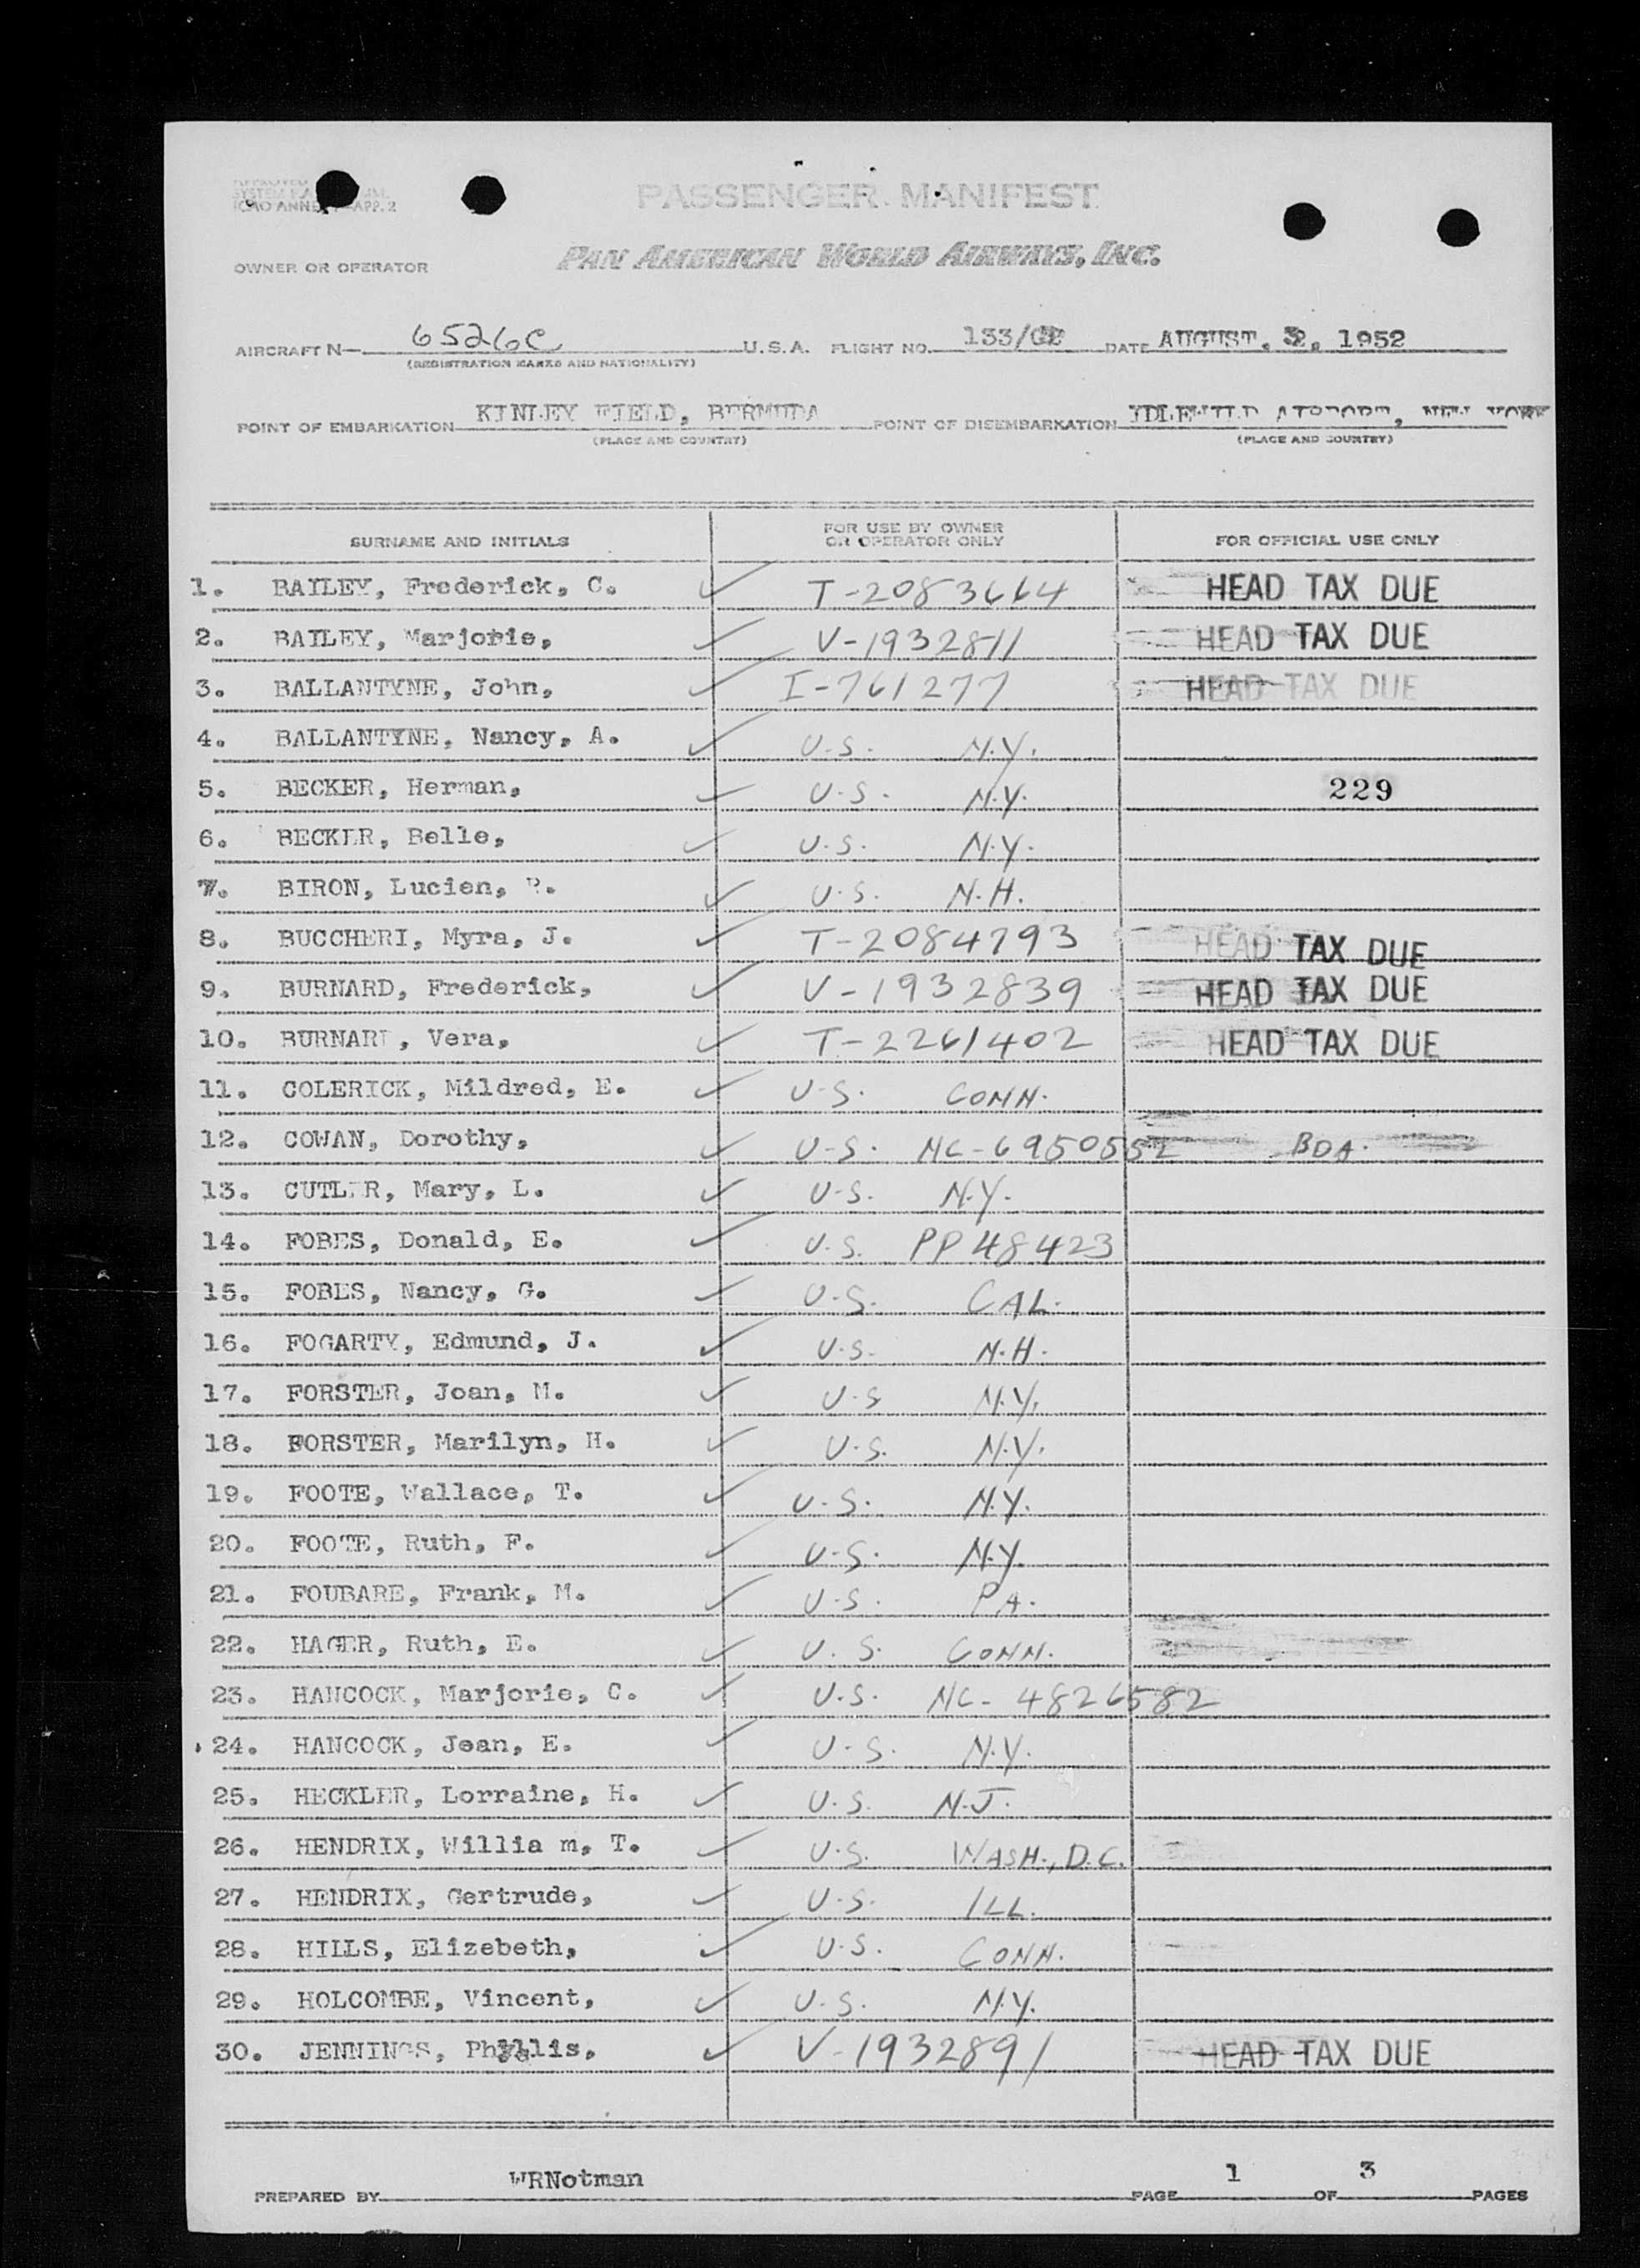 APPROVED
SYSTEM
ICAO ANNEX APP. 2
PASSENGER MANIFEST
OWNER OR OPERATOR PAN AMERICAN WORLD AIRWAYS, INC.
AIRCRAFT N— 6526C U.S.A. FLIGHT NO. 133/ DATE AUGUST, , 1952
(REGISTRATION MARKS AND NATIONALITY)
POINT OF EMBARKATION KINLEY FIELD, BERMUDA POINT OF DISEMBARKATION IDLEWILD AIRPORT, NEW YORK
(PLACE AND COUNTRY) (PLACE AND COUNTRY)
SURNAME AND INITIALS FOR USE BY OWNER OR OPERATOR ONLY FOR OFFICIAL USE ONLY
1. BAILEY, Frederick, C. ✓ T-2083664 HEAD TAX DUE
2. BAILEY, Marjorie, ✓ V-1932811 HEAD TAX DUE
3. BALLANTYNE, John, ✓ I-761277 HEAD TAX DUE
4. BALLANTYNE, Nancy, A. ✓ U.S. N.Y.
5. BECKER, Herman, ✓ U.S. N.Y. 229
6. BECKER, Belle, ✓ U.S. N.Y.
7. BIRON, Lucien, R. ✓ U.S. N.H.
8. BUCCHERI, Myra, J. ✓ T-2084793 HEAD TAX DUE
9. BURNARD, Frederick, ✓ V-1932839 HEAD TAX DUE
10. BURNARD, Vera, ✓ T-2261402 HEAD TAX DUE
11. COLERICK, Mildred, E. ✓ U.S. CONN.
12. COWAN, Dorothy, ✓ U.S. NC-6950552 BDA.
13. CUTLER, Mary, L. ✓ U.S. N.Y.
14. FOBES, Donald, E. ✓ U.S. PP 48423
15. FOBES, Nancy, G. ✓ U.S. CAL.
16. FOGARTY, Edmund, J. ✓ U.S. N.H.
17. FORSTER, Joan, M. ✓ U.S N.Y.
18. FORSTER, Marilyn, H. ✓ U.S. N.Y.
19. FOOTE, Wallace, T. ✓ U.S. N.Y.
20. FOOTE, Ruth, F. ✓ U.S. N.Y.
21. FOUBARE, Frank, M. ✓ U.S. PA.
22. HAGER, Ruth, E. ✓ U.S. CONN.
23. HANCOCK, Marjorie, C. ✓ U.S. NC-4826582
24. HANCOCK, Jean, E. ✓ U.S. N.Y.
25. HECKLER, Lorraine, H. ✓ U.S. N.J.
26. HENDRIX, Willia m, T. ✓ U.S. WASH., D.C.
27. HENDRIX, Gertrude, ✓ U.S. ILL.
28. HILLS, Elizebeth, ✓ U.S. CONN.
29. HOLCOMBE, Vincent, ✓ U.S. N.Y.
30. JENNINGS, Phyllis, ✓ V-1932891 HEAD TAX DUE
PREPARED BY WRNotman PAGE 1 OF 3 PAGES